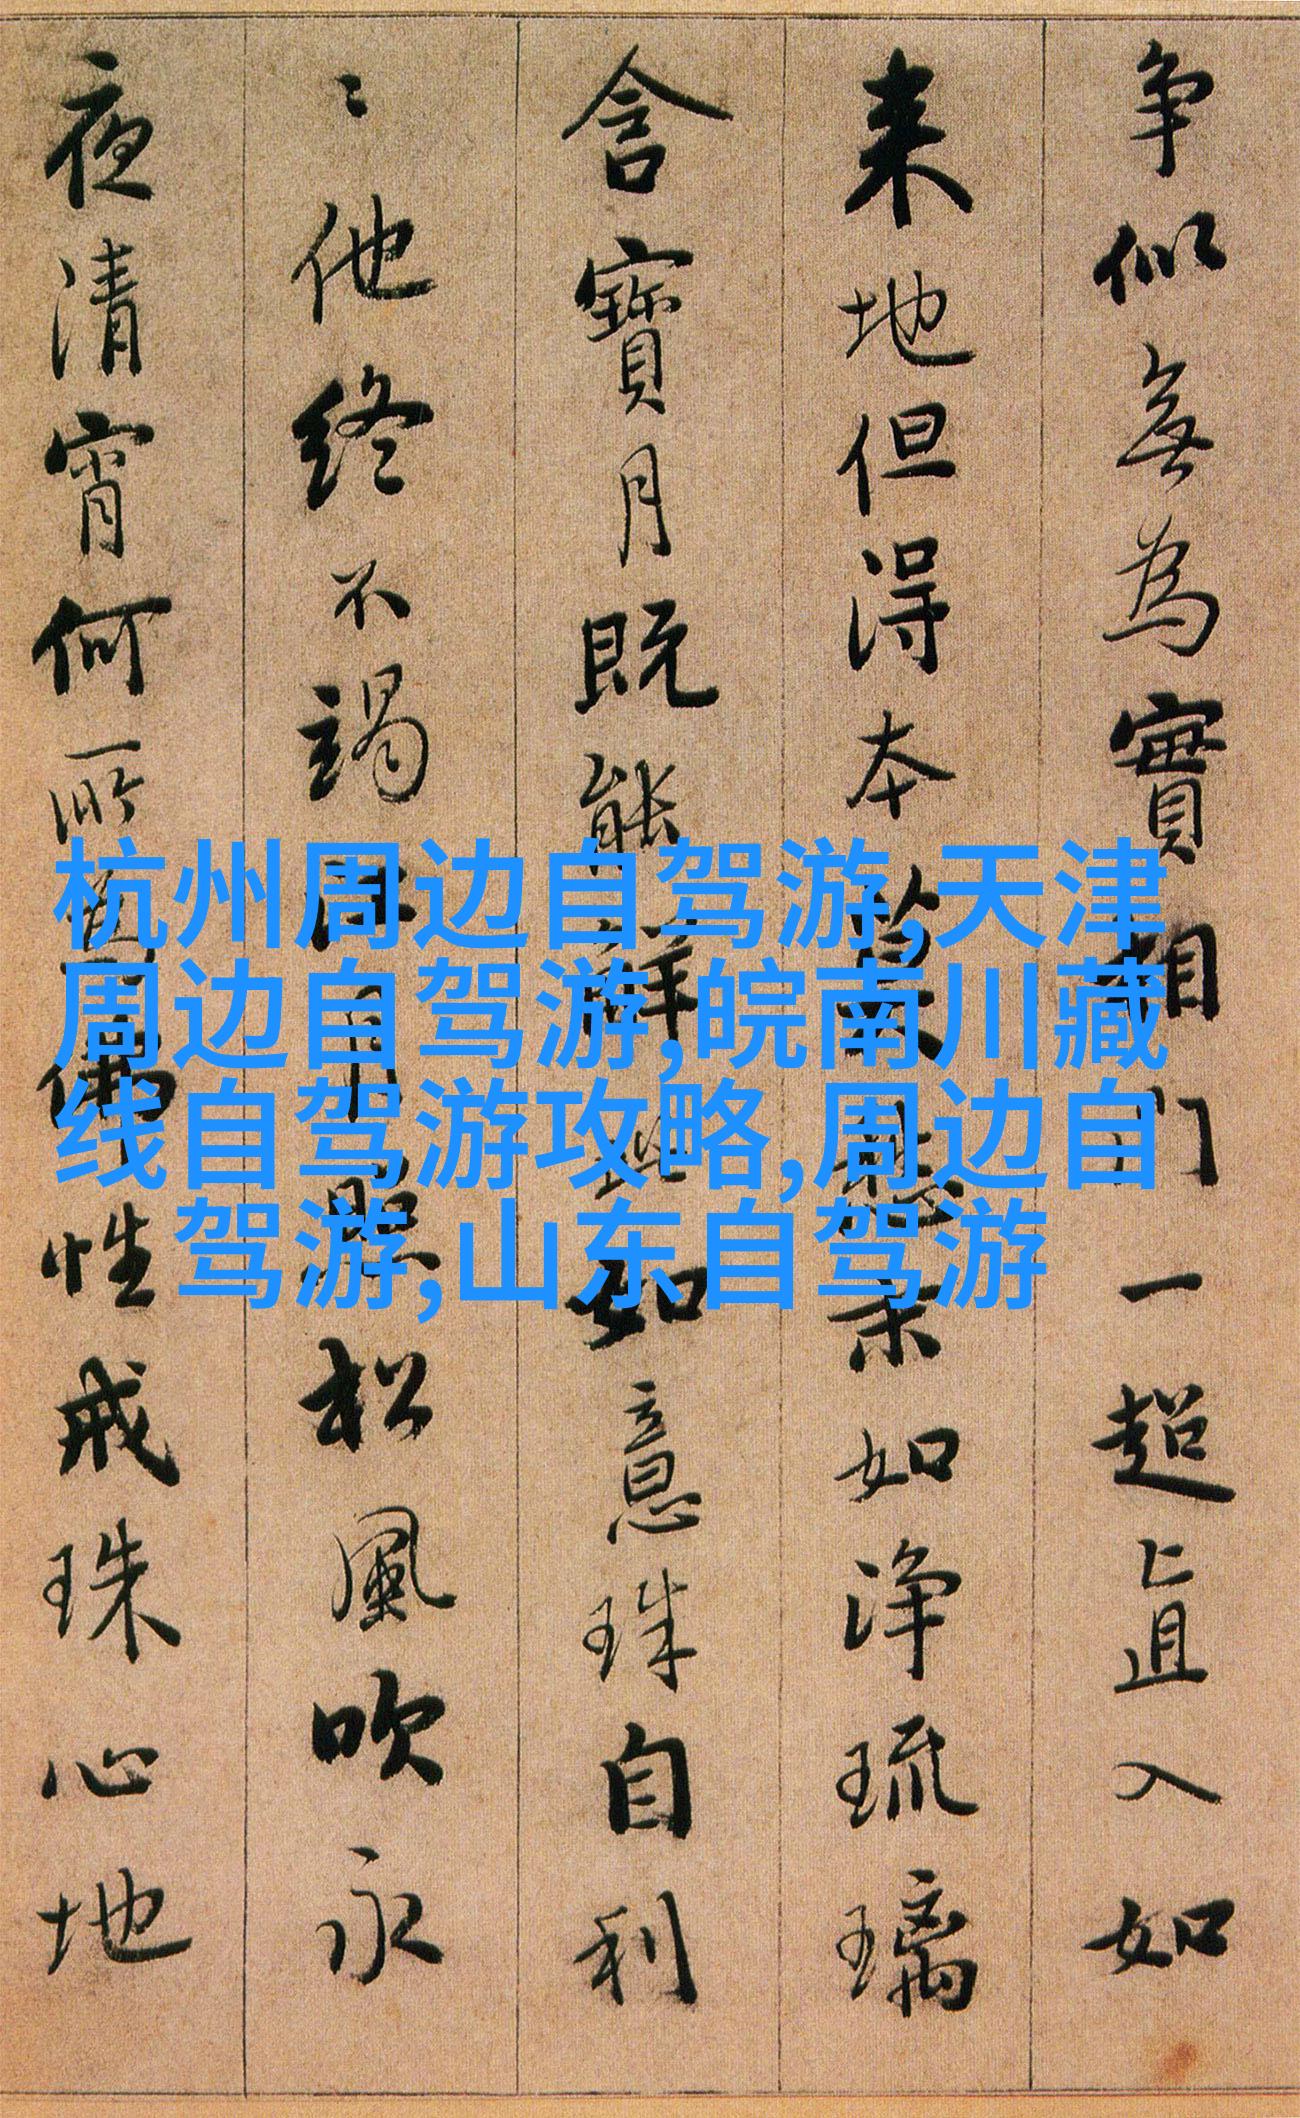 争似無為實相门一超直入如
来地但得本莫愁末如净琉璃
含寶月既能解此如意珠自利
〻他終不竭江月照松風吹永
夜清宵何所為佛性戒珠心地
杭州周边自驾游,天津
周边自驾游,皖南川藏
线自驾游攻略,周边自
驾游,山东自驾游